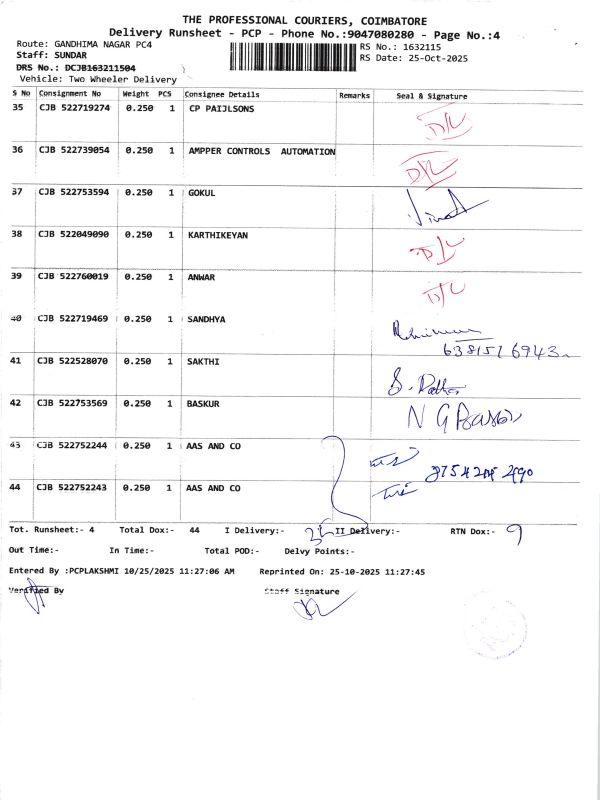 THE PROFESSIONAL COURIERS, COIMBATORE
Delivery Runsheet - PCP - Phone No.:9047080280 - Page No.:4
Route: GANDHIMA NAGAR PC4
Staff: SUNDAR
DRS No.: DCJB163211504
Vehicle: Two Wheeler Delivery
RS No.: 1632115
RS Date: 25-Oct-2025
S No Consignment No Weight PCS Consignee Details Remarks Seal & Signature
35 CJB 522719274 0.250 1 CP PAIJLSONS D/L
36 CJB 522739054 0.250 1 AMPPER CONTROLS AUTOMATION D/L
37 CJB 522753594 0.250 1 GOKUL
38 CJB 522049090 0.250 1 KARTHIKEYAN D/L
39 CJB 522760019 0.250 1 ANWAR D/L
40 CJB 522719469 0.250 1 SANDHYA
41 CJB 522528070 0.250 1 SAKTHI
42 CJB 522753569 0.250 1 BASKUR
43 CJB 522752244 0.250 1 AAS AND CO
44 CJB 522752243 0.250 1 AAS AND CO
Tot. Runsheet:- 4 Total Dox:- 44 I Delivery:- II Delivery:- RTN Dox:- 9
Out Time:- In Time:- Total POD:- Delvy Points:-
Entered By :PCPLAKSHMI 10/25/2025 11:27:06 AM Reprinted On: 25-10-2025 11:27:45
Verified By Staff Signature